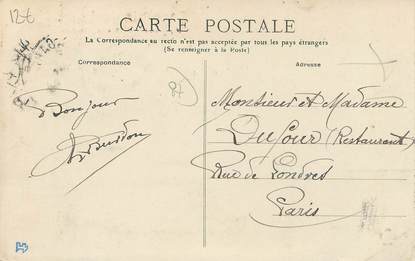 12€
CARTE POSTALE
La Correspondance au recto n'est pas acceptée par tous les pays étrangers
(Se renseigner à la Poste)
Correspondance
Adresse
Bonjour
Monsieur et Madame
Dufour (Restaurant)
Rue de Londres
Paris